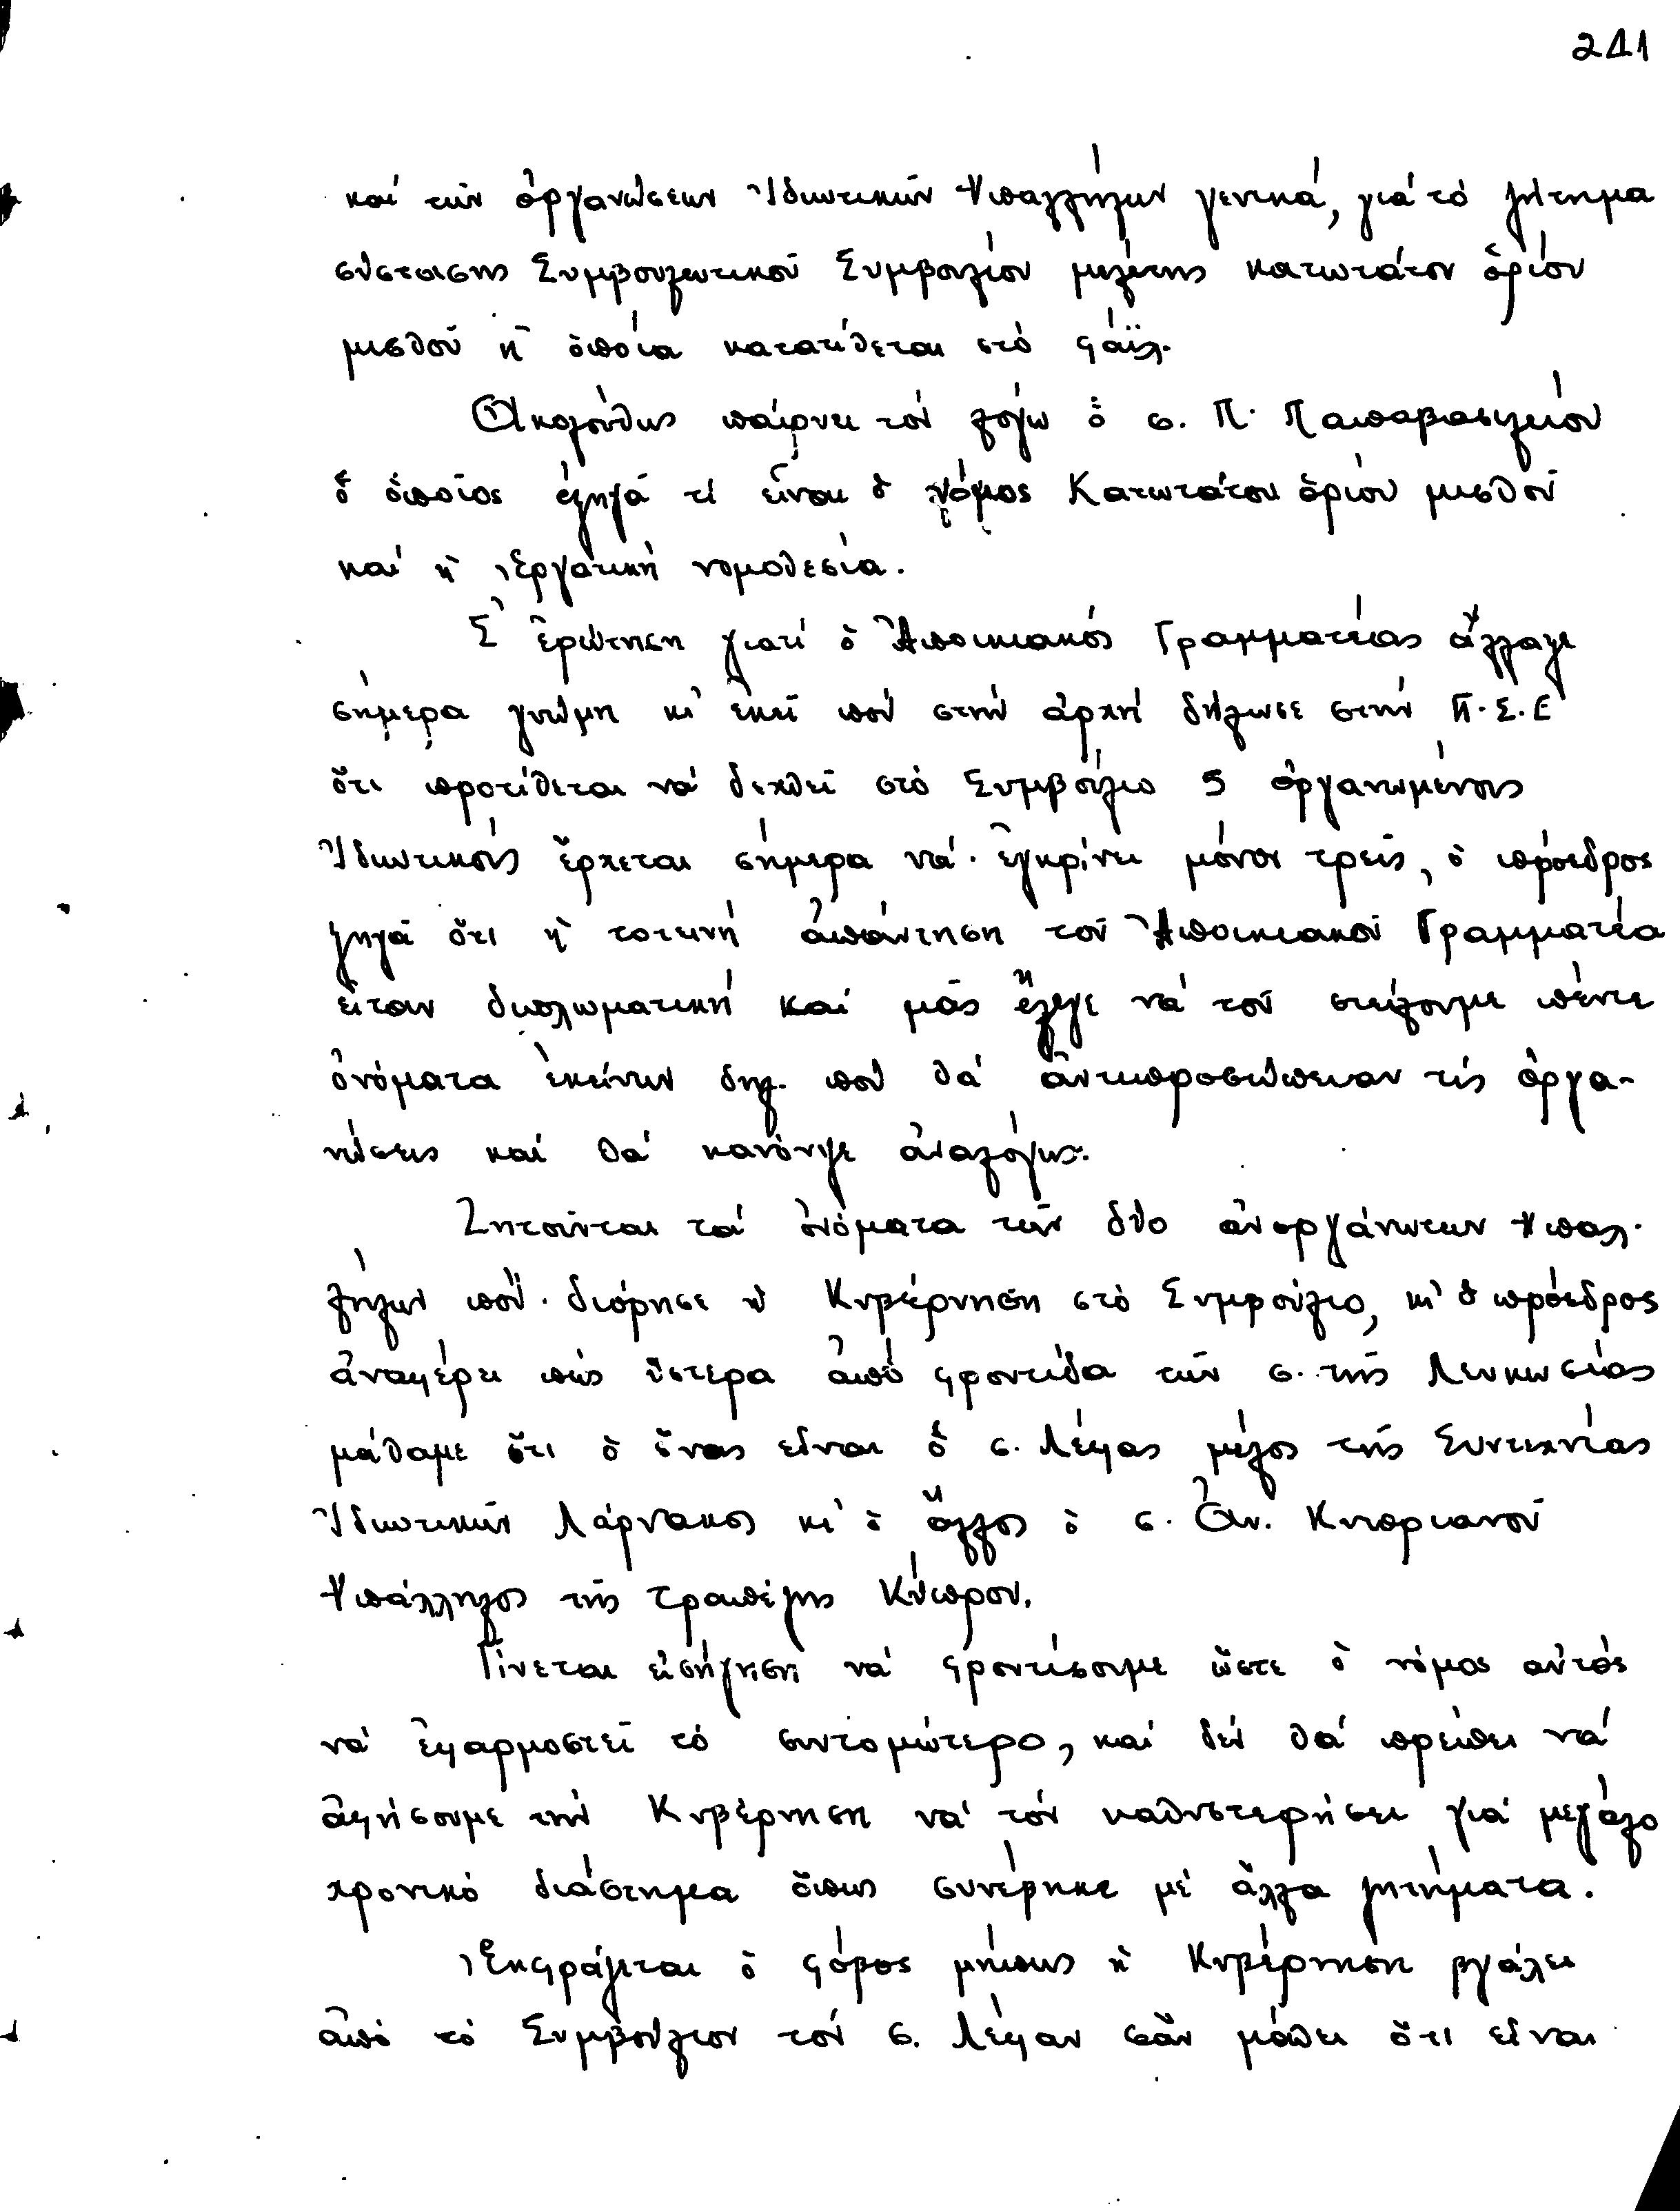 241
καί τῶν ὀργανώσεων Ἰδιωτικῶν Ὑπαλλήλων γενικά, γιά τό ζήτημα
σύστασης Συμβουλευτικοῦ Συμβουλίου μελέτης κατωτάτου ὁρίου
μισθοῦ ἡ ὁποία κατατίθεται στό φάϊλ.
Ἀκολούθως παίρνει τόν λόγω ὁ σ. Π. Παπαβασιλείου
ὁ ὁποῖος ἐξηγᾶ τί εἶναι ὁ νόμος Κατωτάτου ὁρίου μισθοῦ
καί ἡ Ἐργατική νομοθεσία.
Σ' ἐρώτηση γιατί ὁ Ἀποικιακός Γραμματέας ἄλλαξε
σήμερα γνώμη κι' ἐκεῖ πού στήν ἀρχή δήλωσε στήν Π.Σ.Ε
ὅτι προτίθεται νά δεχθεῖ στό Συμβούλιο 5 ὀργανωμένους
Ἰδιωτικούς ἔρχεται σήμερα νά ἐγκρίνει μόνον τρεῖς, ὁ πρόεδρος
ξηγᾶ ὅτι ἡ τοτεινή ἀπάντηση τοῦ Ἀποικιακοῦ Γραμματέα
εἶταν διπλωματική καί μᾶς ἔλεγε νά τοῦ στείλουμε πέντε
ὀνόματα ἐκείνων δηλ. πού θά ἀντιπροσώπευαν τίς ὀργα-
νώσεις καί θά κανόνιζε ἀναλόγως.
Ζητοῦνται τά ὀνόματα τῶν δύο ἀνοργάνωτων Ὑπαλ-
λήλων πού διόρησε ἡ Κυβέρνηση στό Συμβούλιο, κι' ὁ πρόεδρος
ἀναφέρει πώς ὕστερα ἀπό φροντίδα τῶν σ. τῆς Λευκωσίας
μάθαμε ὅτι ὁ ἕνας εἶναι ὁ σ. Λέφας μέλος τῆς Συντεχνίας
Ἰδιωτικῶν Λάρνακος κι' ὁ ἄλλος ὁ σ. Ἀν. Κυπριανοῦ
Ὑπάλληλος τῆς Τραπέζης Κύπρου.
Γίνεται εἰσήγηση νά φροντίσουμε ὥστε ὁ νόμος αὐτός
νά ἐφαρμοστεῖ τό συντομώτερο, καί δέν θά πρέπει νά
ἀφήσουμε τήν Κυβέρνηση νά τόν καθυστερήσει γιά μεγάλο
χρονικό διάστημα ὅπως συνέβηκε μέ ἄλλα ζητήματα.
Ἐκφράζεται ὁ φόβος μήπως ἡ Κυβέρνηση βγάλει
ἀπό τό Συμβούλιον τόν σ. Λέφαν σάν μάθει ὅτι εἶναι